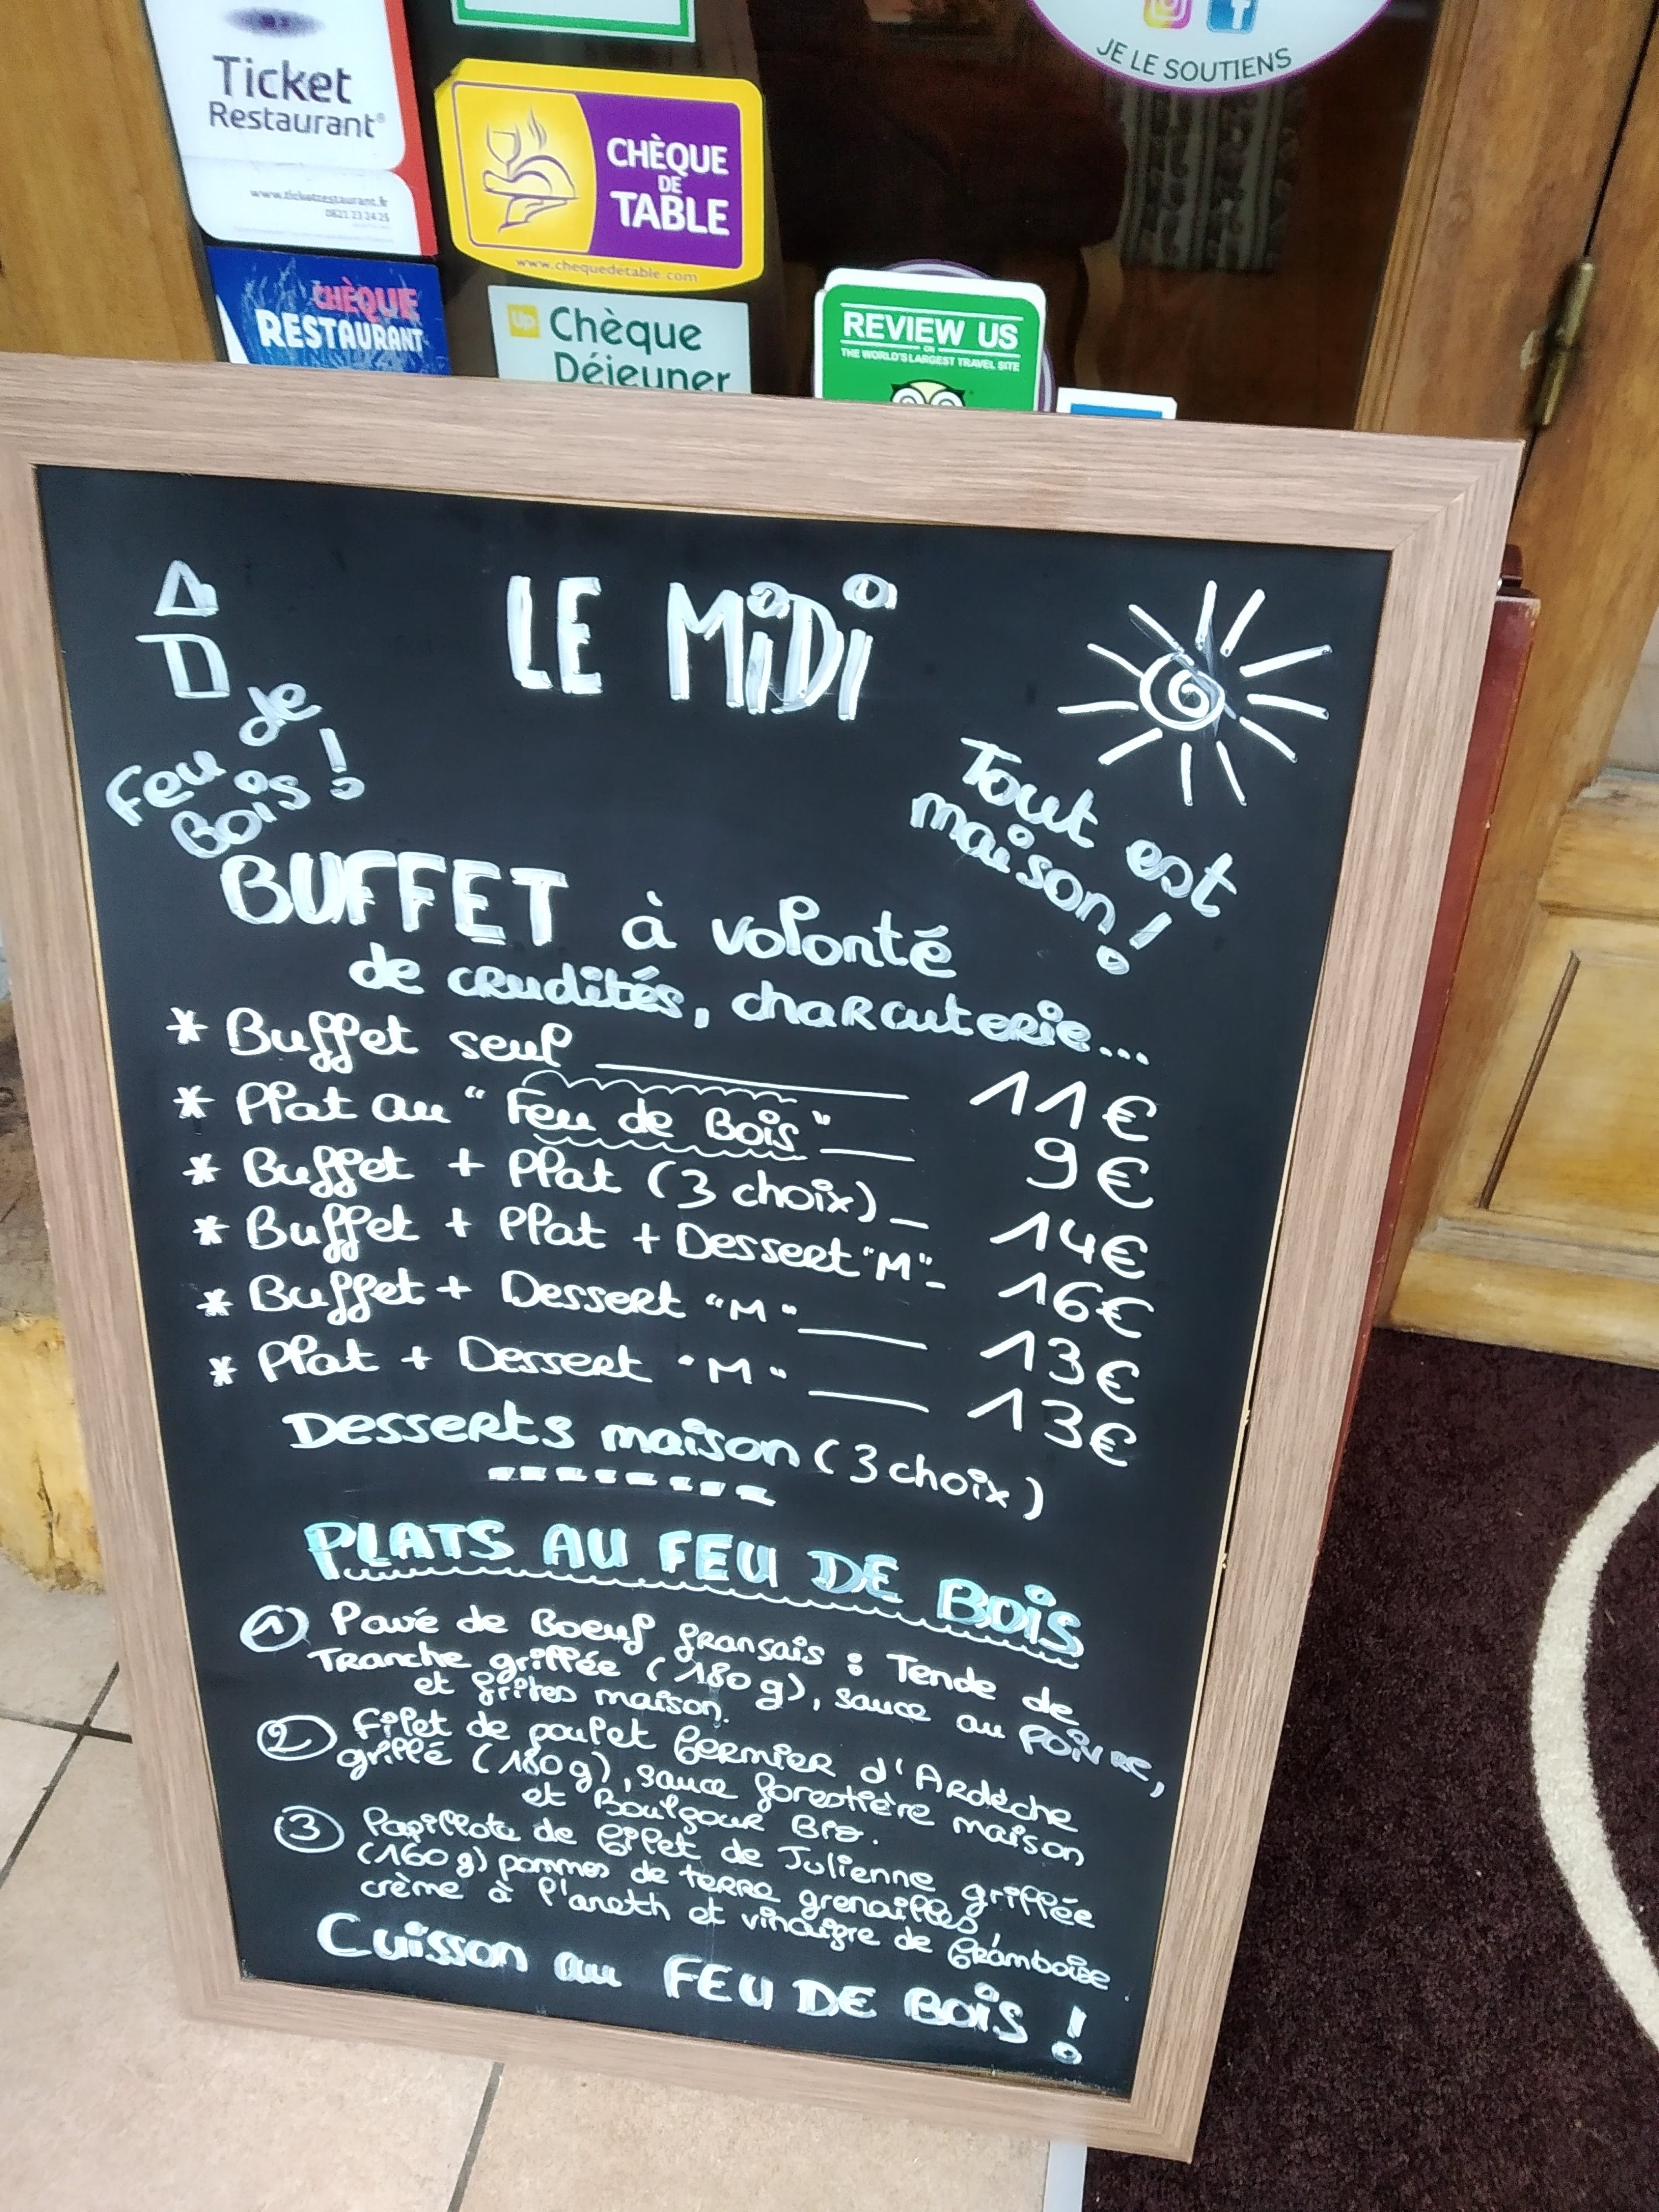 JE LE SOUTIENS
Ticket
Restaurant®
www.ticketrestaurant.fr
0821 23 24 25
CHÈQUE
DE
TABLE
www.chequedetable.com
CHÈQUE
RESTAURANT
Up Chèque
Déjeuner
REVIEW US
ON
THE WORLD'S LARGEST TRAVEL SITE
LE MiDi
Feu de
Bois !
Tout est
maison !
BUFFET à volonté
de crudités, charcuterie...
* Buffet seul ____ 11€
* Plat au "Feu de Bois" __ 9€
* Buffet + Plat (3 choix) _ 14€
* Buffet + Plat + Dessert "M" - 16€
* Buffet + Dessert "M" ___ 13€
* Plat + Dessert "M" ___ 13€
Desserts maison (3 choix)
PLATS AU FEU DE BOiS
1 Pavé de Boeuf français : Tende de
Tranche grillée (180g), sauce au POIVRE,
et frites maison.
2 Filet de poulet fermier d'Ardèche
grillé (180g), sauce forestière maison
et Boulgour Bio.
3 Papillote de filet de Julienne grillée
(160g) pommes de terre grenailles,
crème à l'aneth et vinaigre de framboise.
Cuisson au FEU DE BOiS !